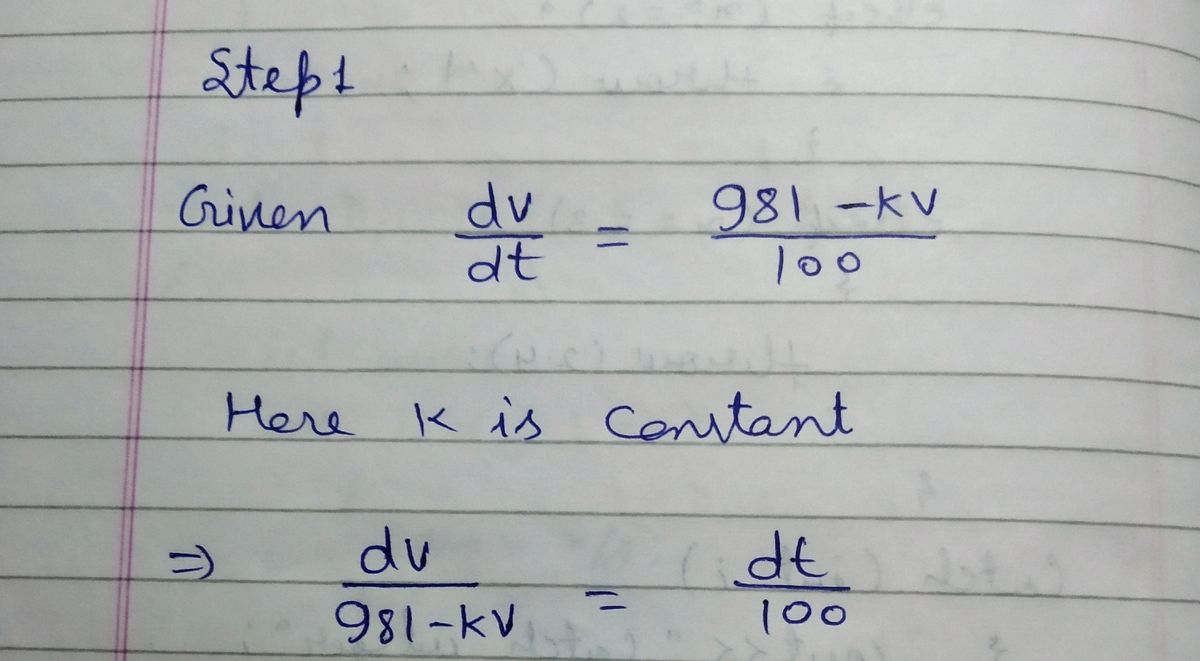 Step 1
Given dv/dt = 981-kv/100
Here k is constant
=> dv/981-kv = dt/100